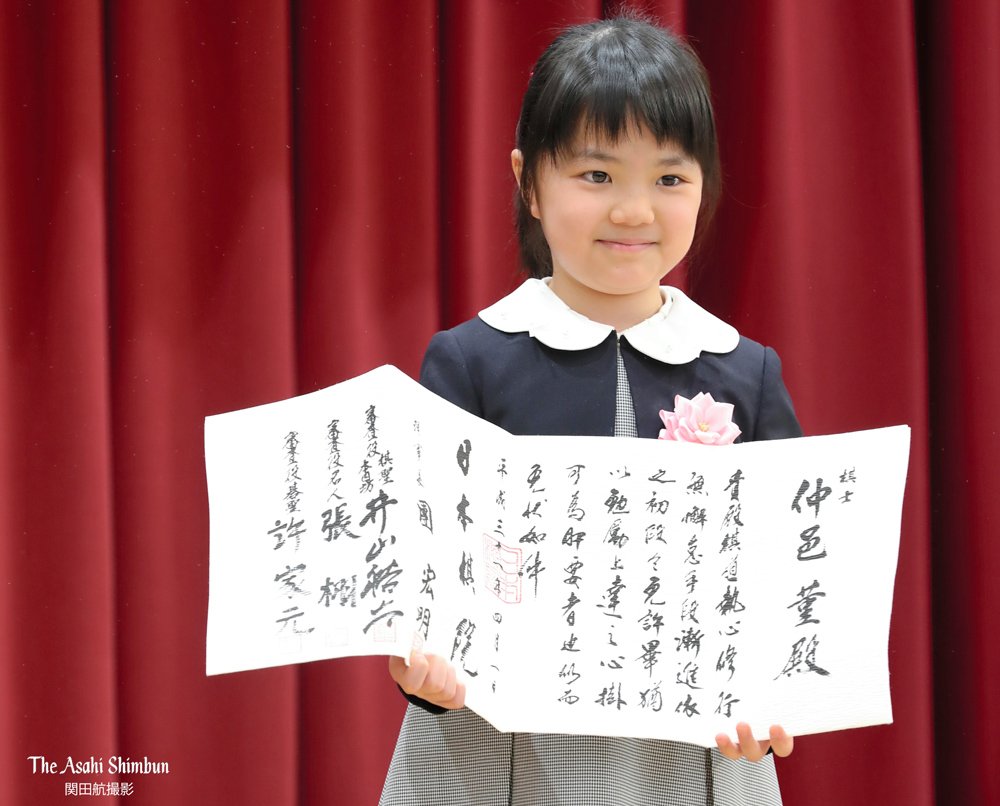 棋士
仲邑 菫殿
貴殿棋道熱心修行
無懈怠手段漸進依
之初段令免許畢猶
以勉勵上達之心掛
可為肝要者也仍而
免状如件
平成三十一年四月一日
日本棋院
理事長 團 宏明
審査役 棋聖 本因坊 井山裕太
審査役名人 張 栩
審査役碁聖 許家元
The Asahi Shimbun
関田航撮影